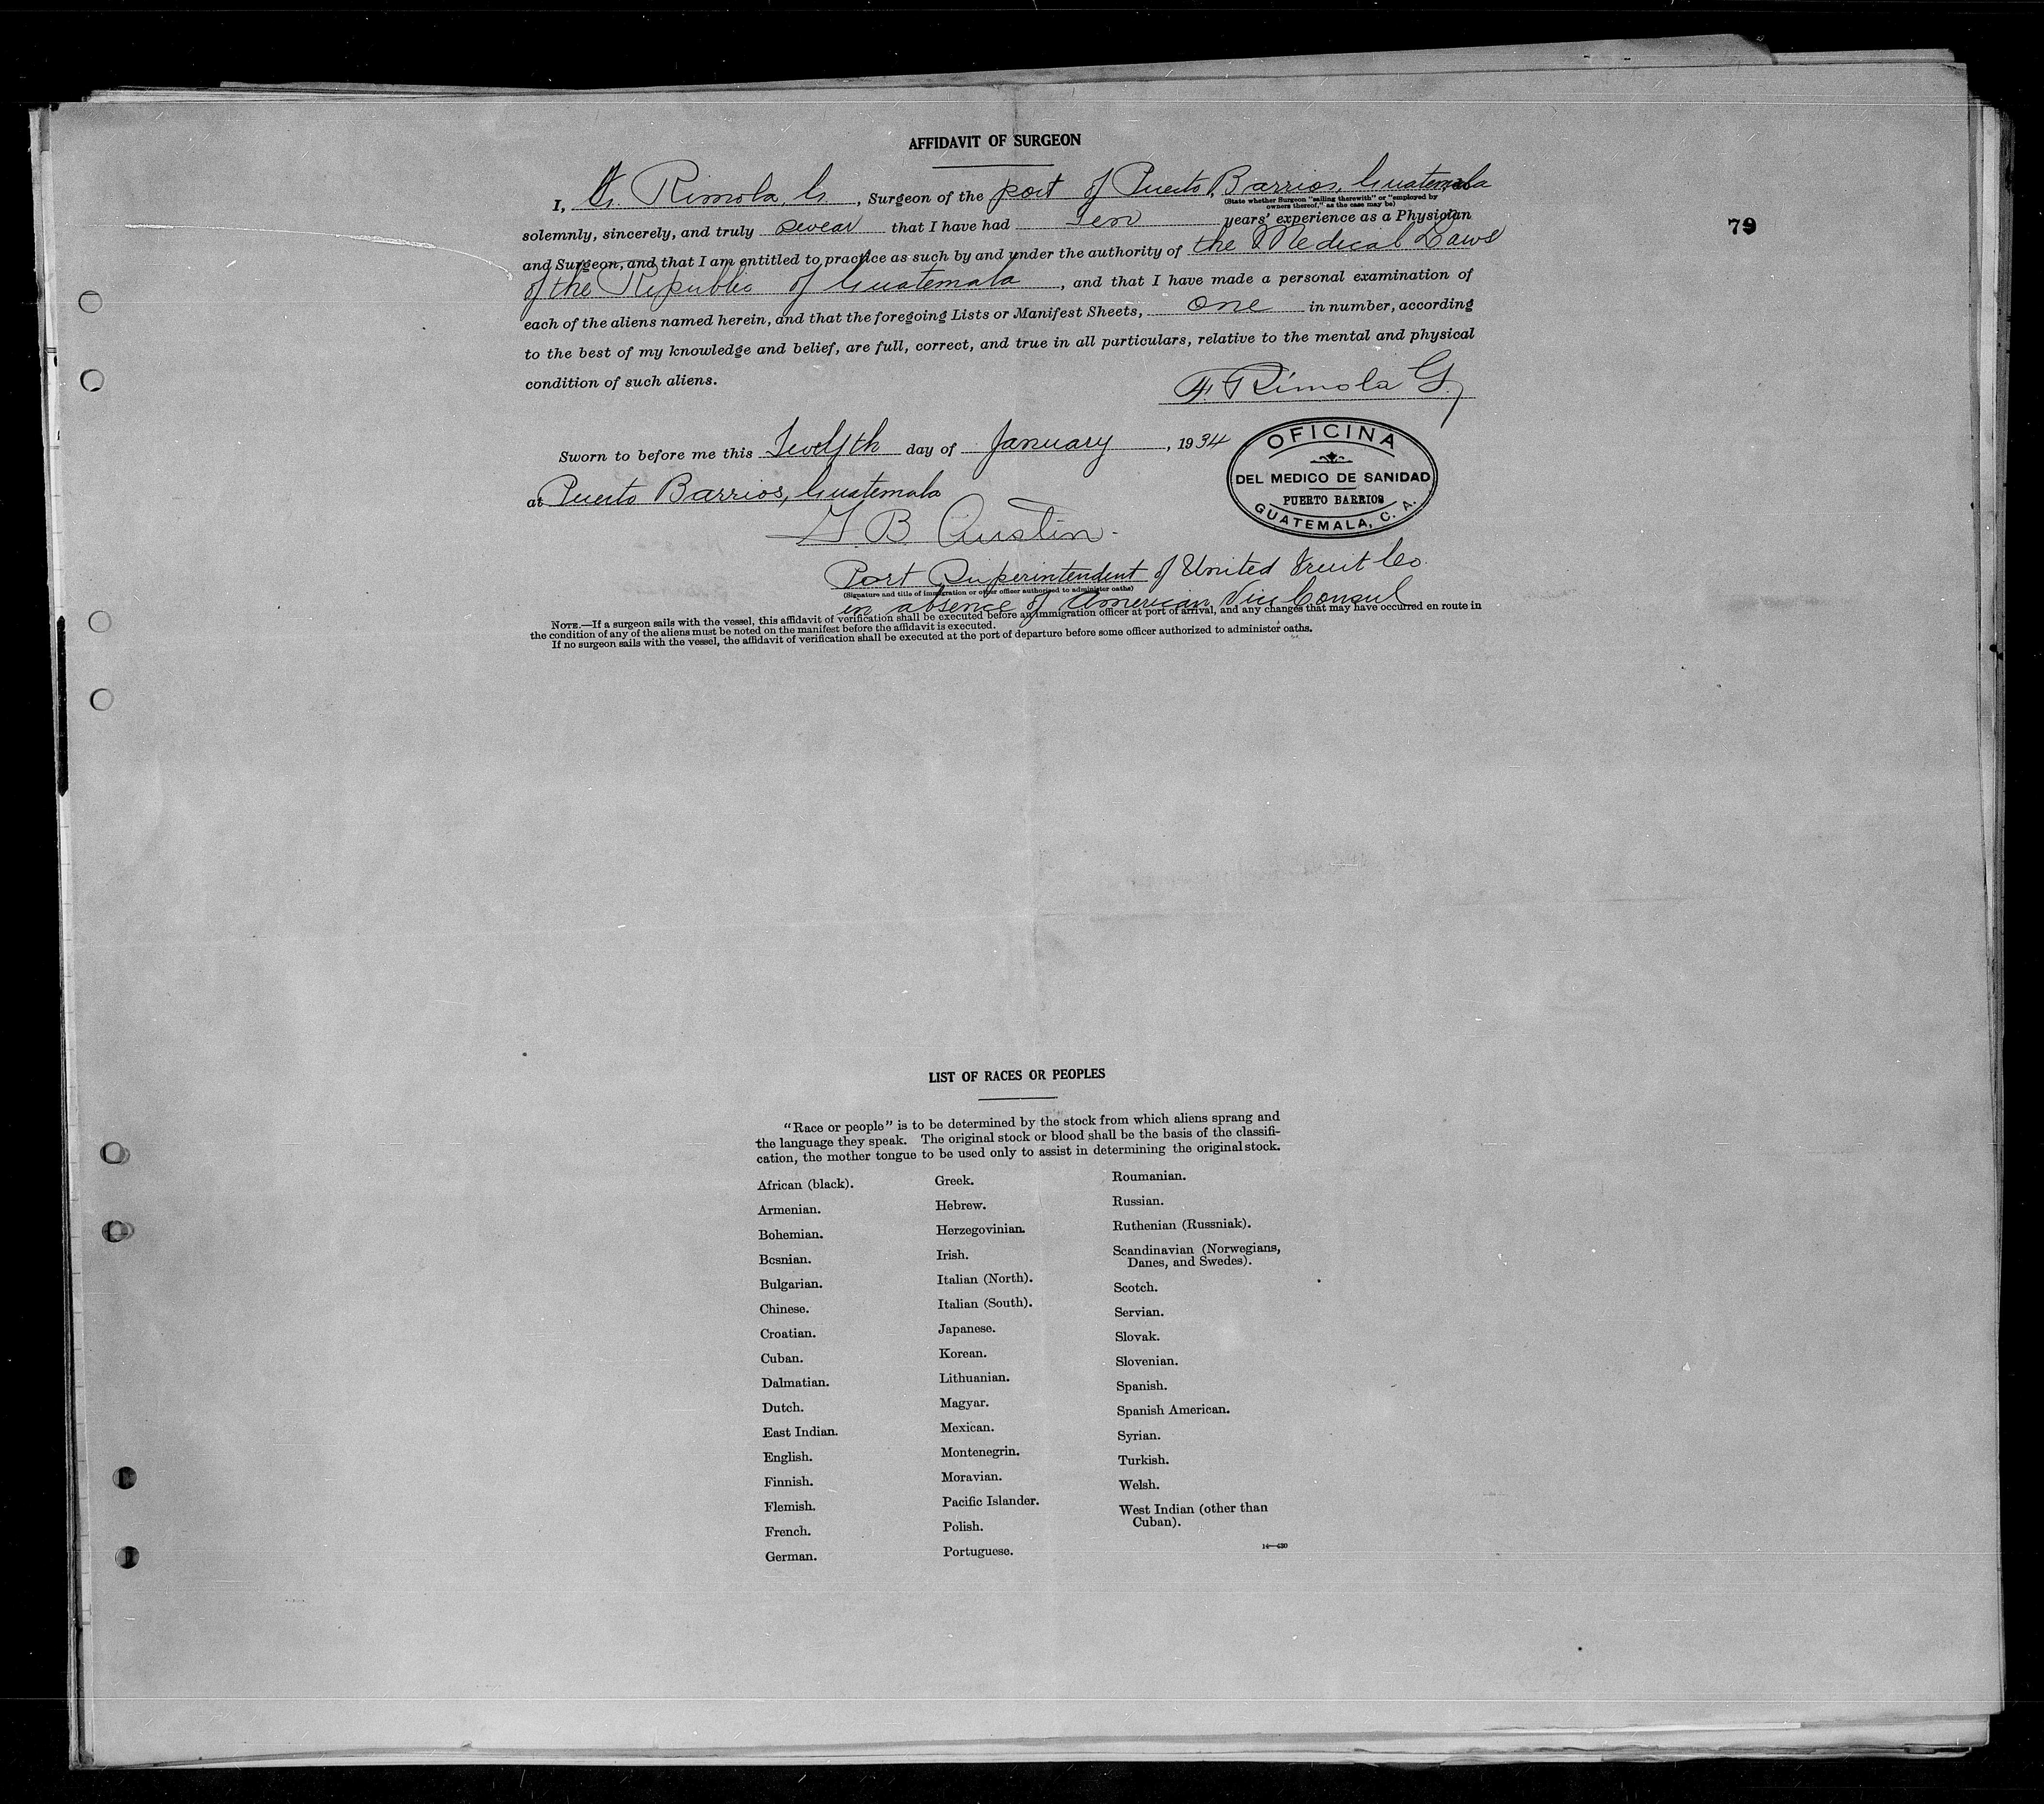 AFFIDAVIT OF SURGEON
79
I, Rimola, G., Surgeon of the port of Puerto Barrios, Guatemala
(State whether Surgeon "sailing therewith" or "employed by
owners thereof," as the case may be)
solemnly, sincerely, and truly swear that I have had Ten years' experience as a Physician
and Surgeon, and that I am entitled to practice as such by and under the authority of the Medical Laws
of the Republic of Guatemala, and that I have made a personal examination of
each of the aliens named herein, and that the foregoing Lists or Manifest Sheets, one in number, according
to the best of my knowledge and belief, are full, correct, and true in all particulars, relative to the mental and physical
condition of such aliens.
F. Rimola G.
Sworn to before me this Twelfth day of January, 1934
at Puerto Barrios, Guatemala
OFICINA
DEL MEDICO DE SANIDAD
PUERTO BARRIOS
GUATEMALA, C. A.
B. Austin
Port Superintendent of United Fruit Co.
(Signature and title of immigration or other officer authorized to administer oaths)
in absence of American Vice Consul
NOTE.—If a surgeon sails with the vessel, this affidavit of verification shall be executed before an immigration officer at port of arrival, and any changes that may have occurred en route in
the condition of any of the aliens must be noted on the manifest before the affidavit is executed.
If no surgeon sails with the vessel, the affidavit of verification shall be executed at the port of departure before some officer authorized to administer oaths.
LIST OF RACES OR PEOPLES
"Race or people" is to be determined by the stock from which aliens sprang and
the language they speak. The original stock or blood shall be the basis of the classifi-
cation, the mother tongue to be used only to assist in determining the original stock.
African (black).
Armenian.
Bohemian.
Bosnian.
Bulgarian.
Chinese.
Croatian.
Cuban.
Dalmatian.
Dutch.
East Indian.
English.
Finnish.
Flemish.
French.
German.
Greek.
Hebrew.
Herzegovinian.
Irish.
Italian (North).
Italian (South).
Japanese.
Korean.
Lithuanian.
Magyar.
Mexican.
Montenegrin.
Moravian.
Pacific Islander.
Polish.
Portuguese.
Roumanian.
Russian.
Ruthenian (Russniak).
Scandinavian (Norwegians,
Danes, and Swedes).
Scotch.
Servian.
Slovak.
Slovenian.
Spanish.
Spanish American.
Syrian.
Turkish.
Welsh.
West Indian (other than
Cuban).
14—430